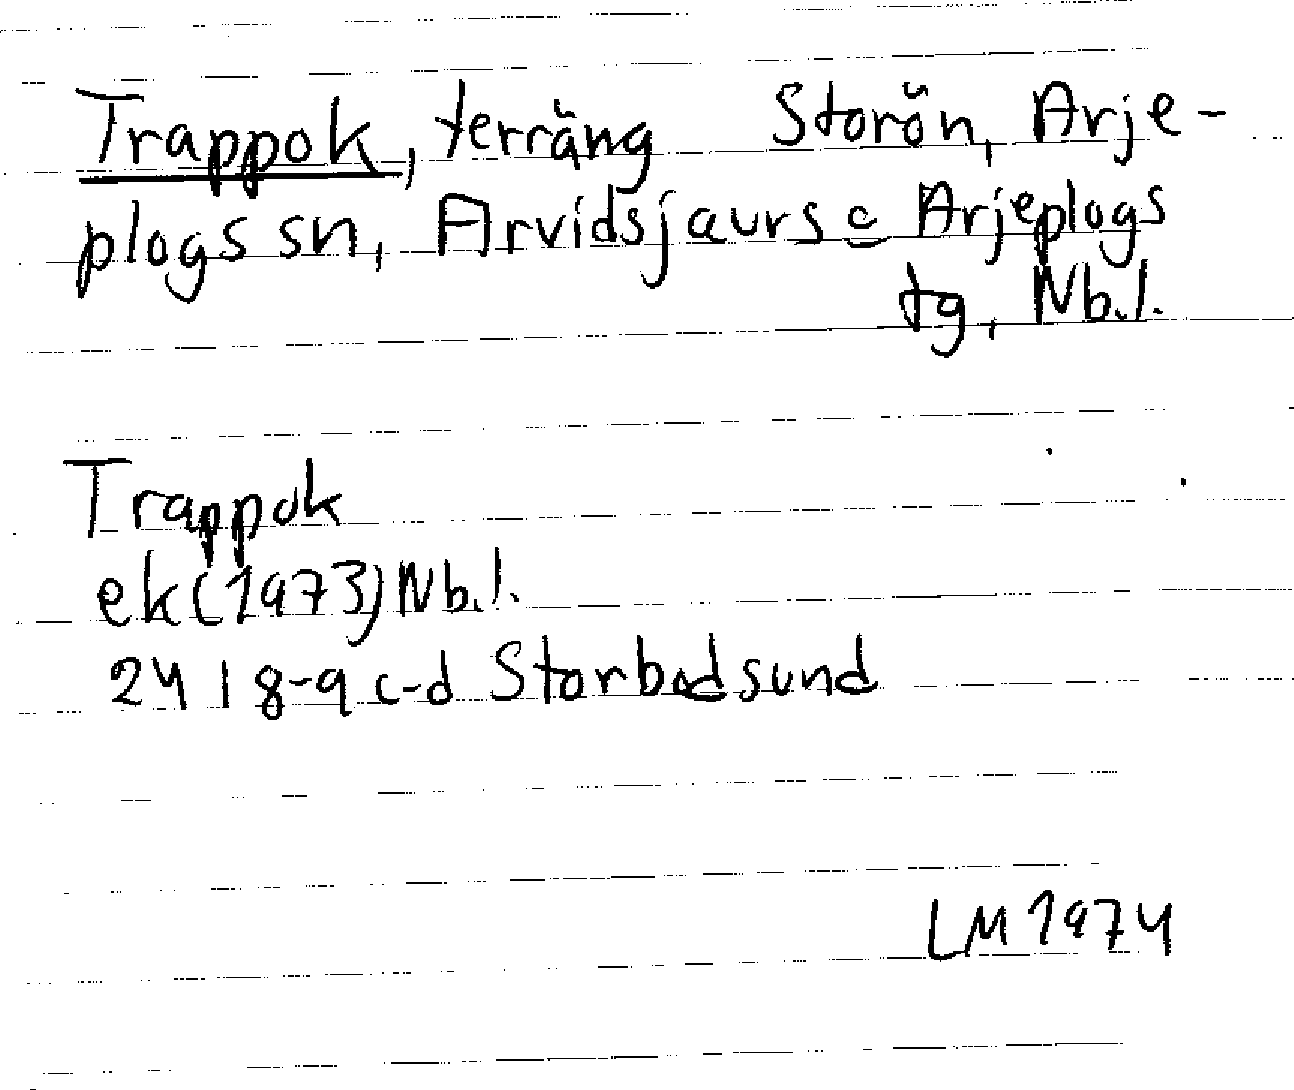 Trappok, terräng Storön, Arje-
plogs sn, Arvidsjaurs o Arjeplogs
tg, Nb.l.
Trappok
ek (1973) Nb.l.
24 I 8-9 c-d Storbodsund
LM 1974